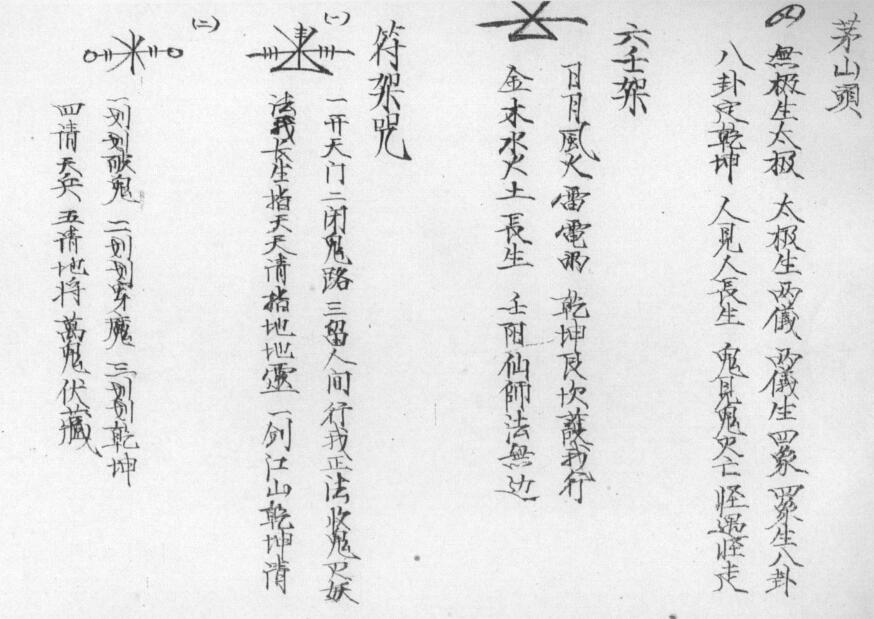 茅山頭
(四) 無极生太极 太极生两儀 两儀生四象 四象生八卦
八卦定乾坤 人見人長生 鬼見鬼灭亡 怪遇怪走
六壬架
日月風火雷電雨 乾坤艮坎護我行
金木水火土長生 壬阳仙師法無边
符架咒
(一)
一开天门二闭鬼路三留人间行我正法收鬼灭妖
法我长生指天天清指地地靈一剑江山乾坤清
(二)
一划划破鬼 二划划穿魔 三划划乾坤
四请天兵 五请地将 萬鬼伏藏